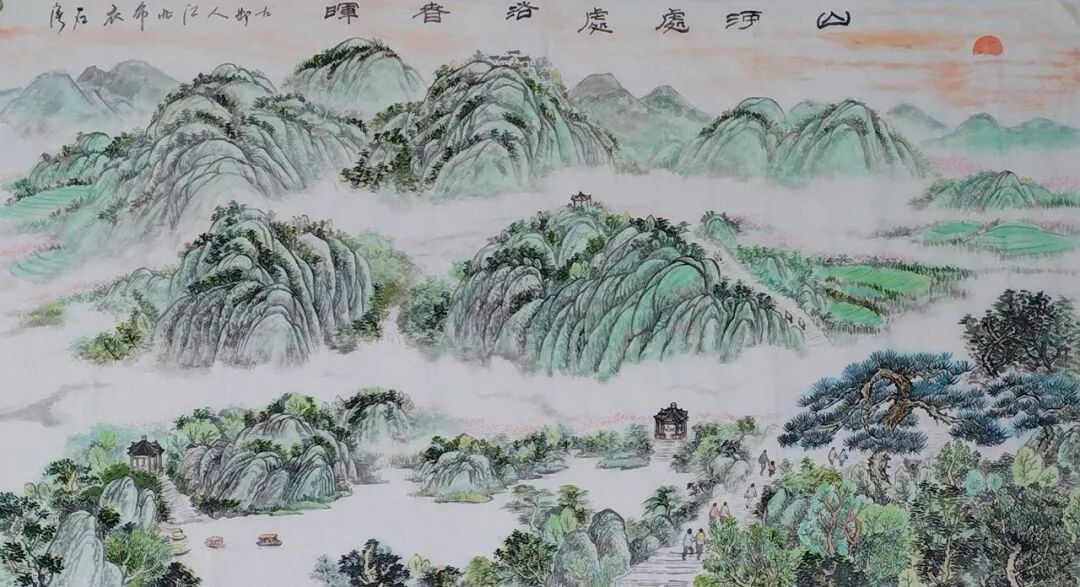 山河處處浴春暉
古人江北布衣石